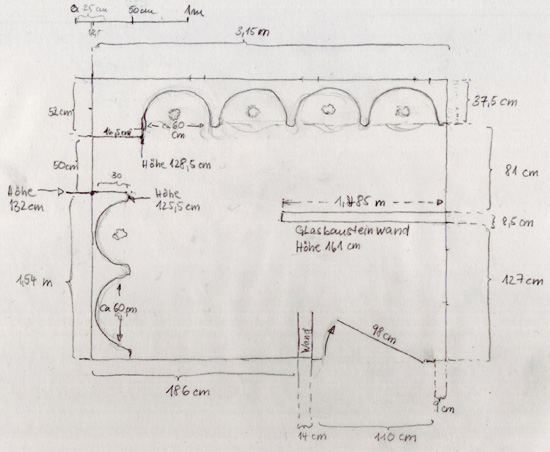 25cm 50cm 1m
12,5
3,15m
52cm
37,5 cm
ca 60
cm
50cm
Höhe 128,5cm
81 cm
30
Höhe
132cm
Höhe
125,5cm
1,85 m
8,5cm
Glasbausteinwand
Höhe 161 cm
1,54 m
ca 60cm
127cm
98cm
Wand
186 cm
9cm
14 cm
110cm